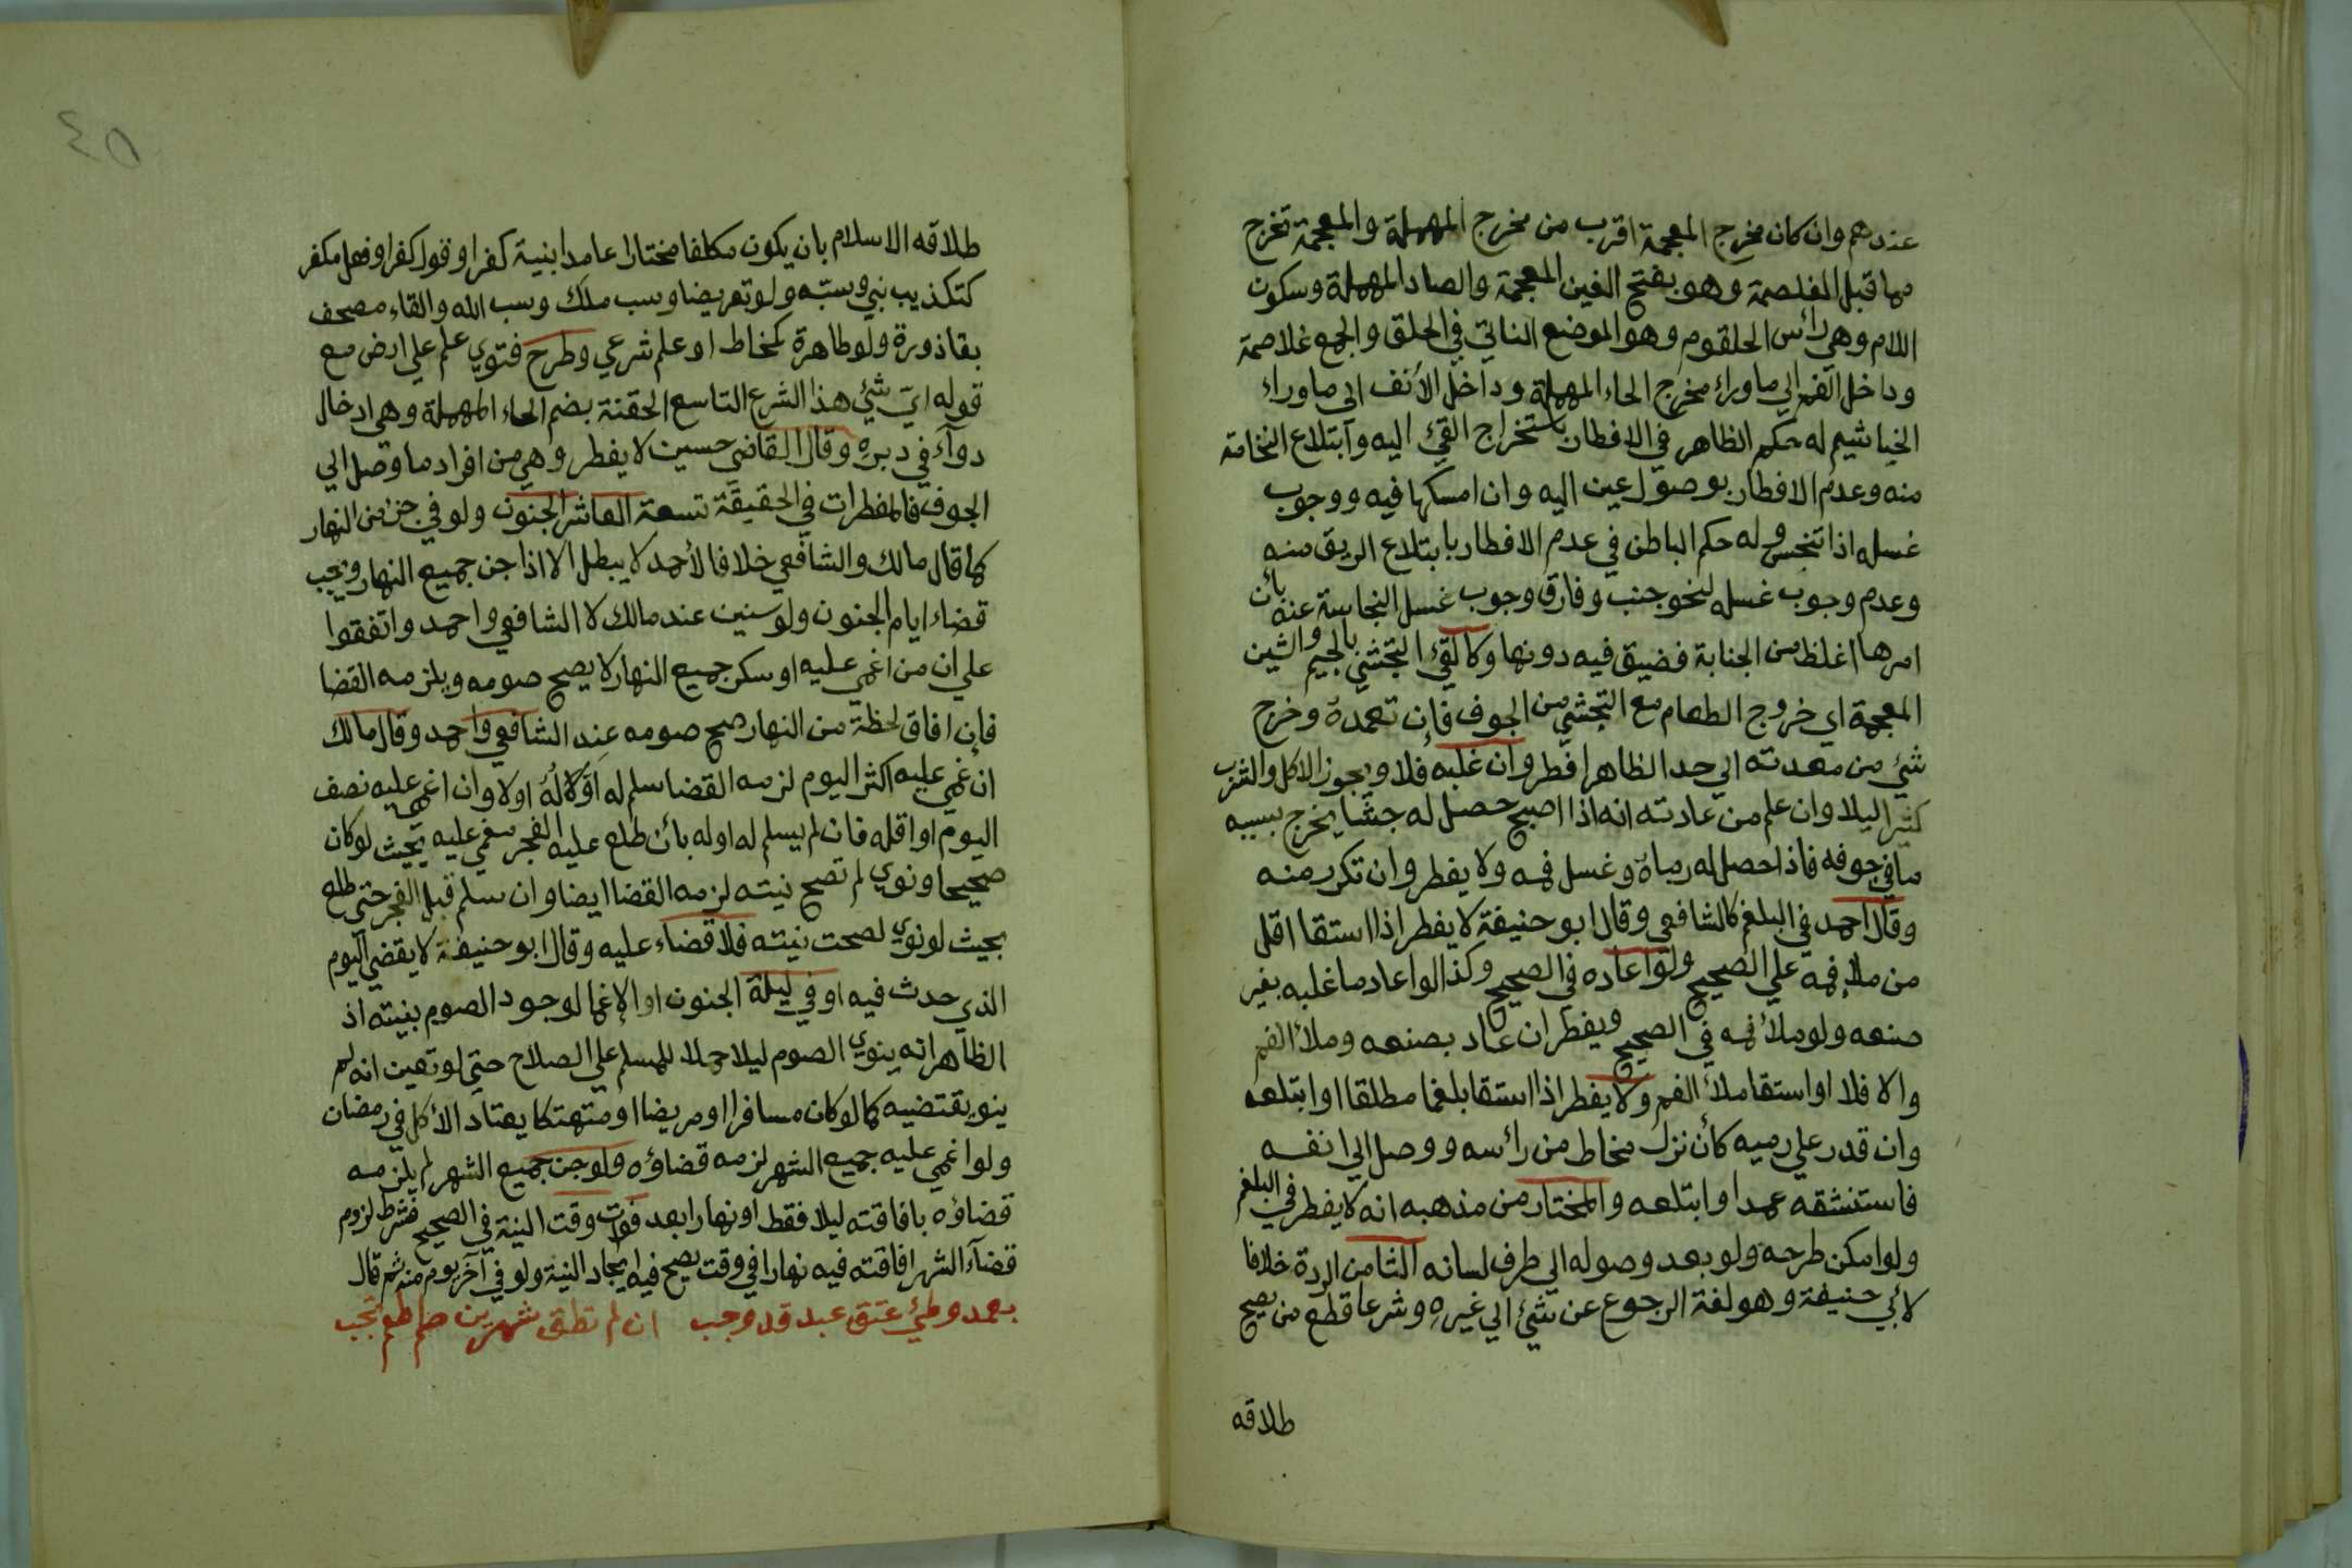 عندهم وان كان مخرج المعجمة اقرب من مخرج المهملة والمعجمة تخرج
مما قبل الغلصمة وهو بفتح الغين المعجمة والصاد المهملة وسكون
اللام وهي رأس الحلقوم وهو الموضع الناتي في الحلق والجمع غلاصمة
وداخل الفم الي ماوراء مخرج الحاء المهملة وداخل الأنف الي ماوراء
الخياشيم له حكم الظاهر في الافطار باستخراج القيء اليه وآبتلاع النخامة
منه وعدم الافطار بوصول عين اليه وان امسكها فيه ووجوب
غسله اذا تنجس وله حكم الباطن في عدم الافطار بابتلاع الريق منه
وعدم وجوب غسله لنحو جنب وفارق وجوب غسل النجاسة عنه بأن
امرها اغلظ من الجنابة فضيق فيه دونها وكالقيء التجشي بالجيم والشين
المعجمة اي خروج الطعام مع التجشي من الجوف فإن تعمده وخرج
شيء من معدته الي حد الظاهر افطر وان غلبه فلا ويجوز الاكل والشرب
كثيرا ليلا وان علم من عادته انه اذا اصبح حصل له جشا يخرج بسببه
ما في جوفه فاذا حصل له رماه وغسل فمه ولا يفطر وان تكرر منه
وقال احمد في البلغم كالشافعي وقال ابو حنيفة لا يفطر اذا استقا اقل
من ملإ فمه علي الصحيح ولو اعاده في الصحيح وكذا لو اعاد ما غلبه بغير
صنعه ولو ملأ فمه في الصحيح ويفطر ان عاد بصنعه وملأ الفم
والا فلا او استقا ملأ الفم ولا يفطر اذا استقا بلغما مطلقا او ابتلعه
وان قدر علي رميه كأن نزل مخاط من رائسه ووصل الي انفه
فاستنشقه عمدا وابتلعه والمختار من مذهبه انه لا يفطر في البلغم
ولو امكن طرحه ولو بعد وصوله الي طرف لسانه الثامن الردة خلافا
لأبي حنيفة وهو لغة الرجوع عن شيء الي غيره وشرعا قطع من يصح
طلاقه
طلاقه الاسلام بان يكون مكلفا مختارا عامدا بنية كفر او قول كفر او فعل مكفر
كتكذيب نبي وسبّه ولو تعريضا وسب ملك وسب الله والقاء مصحف
بقاذورة ولو طاهرة كمخاط او علم شرعي وطرح فتوي علم علي ارض مع
قوله ايّ شيء هذا الشرع التاسع الحقنة بضم الحاء المهملة وهي ادخال
دوآء في دبره وقال القاضي حسين لا يفطر وهي من افراد ما وصل الي
الجوف فالمفطرات في الحقيقة تسعة العاشر الجنون ولو في جزء من النهار
كما قال مالك والشافعي خلافا لأحمد لا يبطل الا اذا جن جميع النهار ويجب
قضاء ايام الجنون ولو سنين عند مالك لا الشافعي واحمد واتفقوا
علي ان من اغمي عليه او سكر جميع النهار لا يصح صومه ويلزمه القضا
فإن افاق لحظة من النهار صح صومه عند الشافعي واحمد وقال مالك
ان غمي عليه اكثر اليوم لزمه القضا سلم له اوّلا لَهُ اولا وان اغمي عليه نصف
اليوم او اقله فان لم يسلم له اوله بأن طلع عليه الفجر مغمي عليه بحيث لو كان
صحيحا ونوي لم تصح نيته لزمه القضا ايضا وان سلم قبل الفجر حتي طلع
بحيث لو نوي لصحت نيته فلا قضاء عليه وقال ابو حنيفة لا يقضي اليوم
الذي حدث فيه او في ليلة الجنون او الإغما لوجود الصوم بنيته اذ
الظاهر انه ينوي الصوم ليلا حملا للمسلم علي الصلاح حتي لو تعين انه لم
ينو يقتضيه كما لو كان مسافرا او مريضا او متهتكا يعتاد الأكل في رمضان
ولو اغمي عليه جميع الشهر لزمه قضاؤه ولو جن جميع الشهر لم يلزمه
قضاؤه بافاقته ليلا فقط او نهارا بعد فوات وقت النية في الصحيح فشرط لزوم
قضآء الشهر افاقته فيه نهارا في وقت يصح فيه ايجاد النية ولو في آخر يوم منه ثم قال
بعمد وطئ عتق عبد قد وجب ان لم تطق شهرين صم طعم تجب